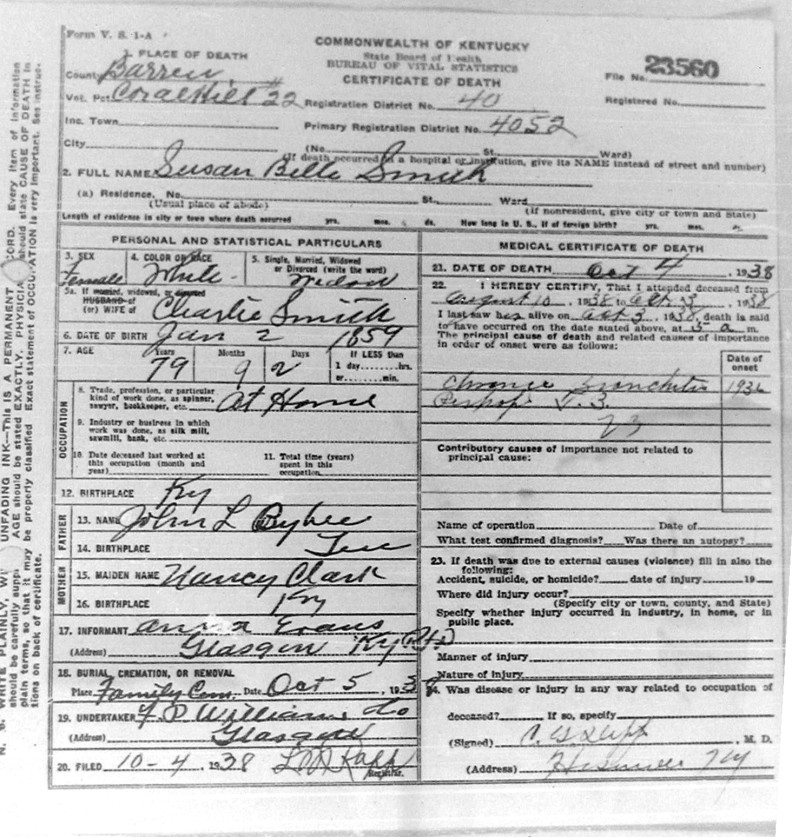 Form V. S. 1-A
COMMONWEALTH OF KENTUCKY
State Board of Health
BUREAU OF VITAL STATISTICS
CERTIFICATE OF DEATH
File No. 23560
Registered No.
1. PLACE OF DEATH
County Barren
Vot. Pct. Coral Hill #22 Registration District No. 40
Inc. Town Primary Registration District No. 4052
City (No. St. Ward)
(If death occurred in a hospital or institution, give its NAME instead of street and number)
2. FULL NAME Susan Belle Smith
(a) Residence. No. St., Ward
(Usual place of abode) (If nonresident, give city or town and State)
Length of residence in city or town where death occurred yrs. mos. ds. How long in U. S., if of foreign birth? yrs. mos. ds.
PERSONAL AND STATISTICAL PARTICULARS
3. SEX 4. COLOR OR RACE 5. Single, Married, Widowed
or Divorced (write the word)
Female White Widow
5a. If married, widowed, or divorced
HUSBAND of
(or) WIFE of Charlie Smith
6. DATE OF BIRTH Jan 2 1859
7. AGE Years Months Days If LESS than
1 day hrs.
79 9 2 or min.
OCCUPATION
8. Trade, profession, or particular
kind of work done, as spinner,
sawyer, bookkeeper, etc. At Home
9. Industry or business in which
work was done, as silk mill,
sawmill, bank, etc.
10. Date deceased last worked at
this occupation (month and
year)
11. Total time (years)
spent in this
occupation
12. BIRTHPLACE Ky
FATHER
13. NAME John L Bybee
14. BIRTHPLACE
MOTHER
15. MAIDEN NAME Nancy Clark
16. BIRTHPLACE Ky
17. INFORMANT Anna Evans
(Address) Glasgow Ky
18. BURIAL, CREMATION, OR REMOVAL
Place Family Cem. Date Oct 5, 193
19. UNDERTAKER F P Williams Co
(Address) Glasgow
20. FILED 10-4, 1938
Registrar.
MEDICAL CERTIFICATE OF DEATH
21. DATE OF DEATH Oct 4, 1938
22. I HEREBY CERTIFY, That I attended deceased from
August 10, 1938 to Oct. 3, 1938
I last saw her alive on Oct 3, 1938, death is said
to have occurred on the date stated above, at 5 a m.
The principal cause of death and related causes of importance
in order of onset were as follows:
Date of
onset
Chronic Bronchitis 1936
Perhaps T.B.
23
Contributory causes of importance not related to
principal cause:
Name of operation Date of
What test confirmed diagnosis? Was there an autopsy?
23. If death was due to external causes (violence) fill in also the
following:
Accident, suicide, or homicide? date of injury 19
Where did injury occur?
(Specify city or town, county, and State)
Specify whether injury occurred in industry, in home, or in
public place.
Manner of injury
Nature of injury
24. Was disease or injury in any way related to occupation of
deceased? If so, specify
(Signed) , M. D.
(Address) Ky
N. B. WRITE PLAINLY, UNFADING INK—THIS IS A PERMANENT CORD. Every item of information
should be carefully supp AGE should be stated EXACTLY. PHYSICIA should state CAUSE OF DEATH in
plain terms, so that it may be properly classified. Exact statement of OCCUPATION is very important. See instruc-
tions on back of certificate.